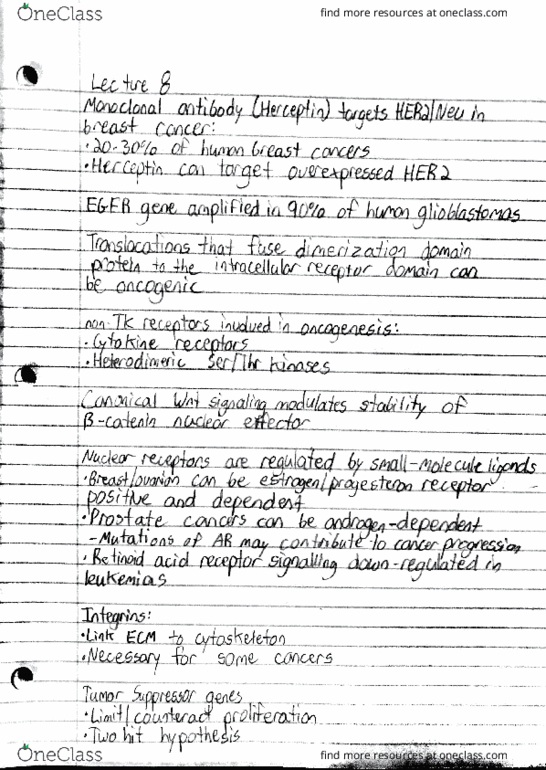 OneClass find more resources at oneclass.com
Lecture 8
Monoclonal antibody (Herceptin) targets HER2/Neu in
breast cancer:
• 20-30% of human breast cancers
• Herceptin can target overexpressed HER2
EGFR gene amplified in 90% of human glioblastomas
Translocations that fuse dimerization domain
protein to the intracellular receptor domain can
be oncogenic
non-TK receptors involved in oncogenesis:
• Cytokine receptors
• Heterodimeric Ser/Thr kinases
Canonical Wnt signaling modulates stability of
β-catenin nuclear effector
Nuclear receptors are regulated by small-molecule ligands
• Breast/ovarian can be estrogen/progesteron receptor
positive and dependent
• Prostate cancers can be androgen-dependent
- Mutations of AR may contribute to cancer progression
• Retinoid acid receptor signalling down-regulated in
leukemias
Integrins:
• Link ECM to cytoskeleton
• Necessary for some cancers
Tumor Suppressor genes
• Limit/counteract proliferation
• Two hit hypothesis
OneClass find more resources at oneclass.com